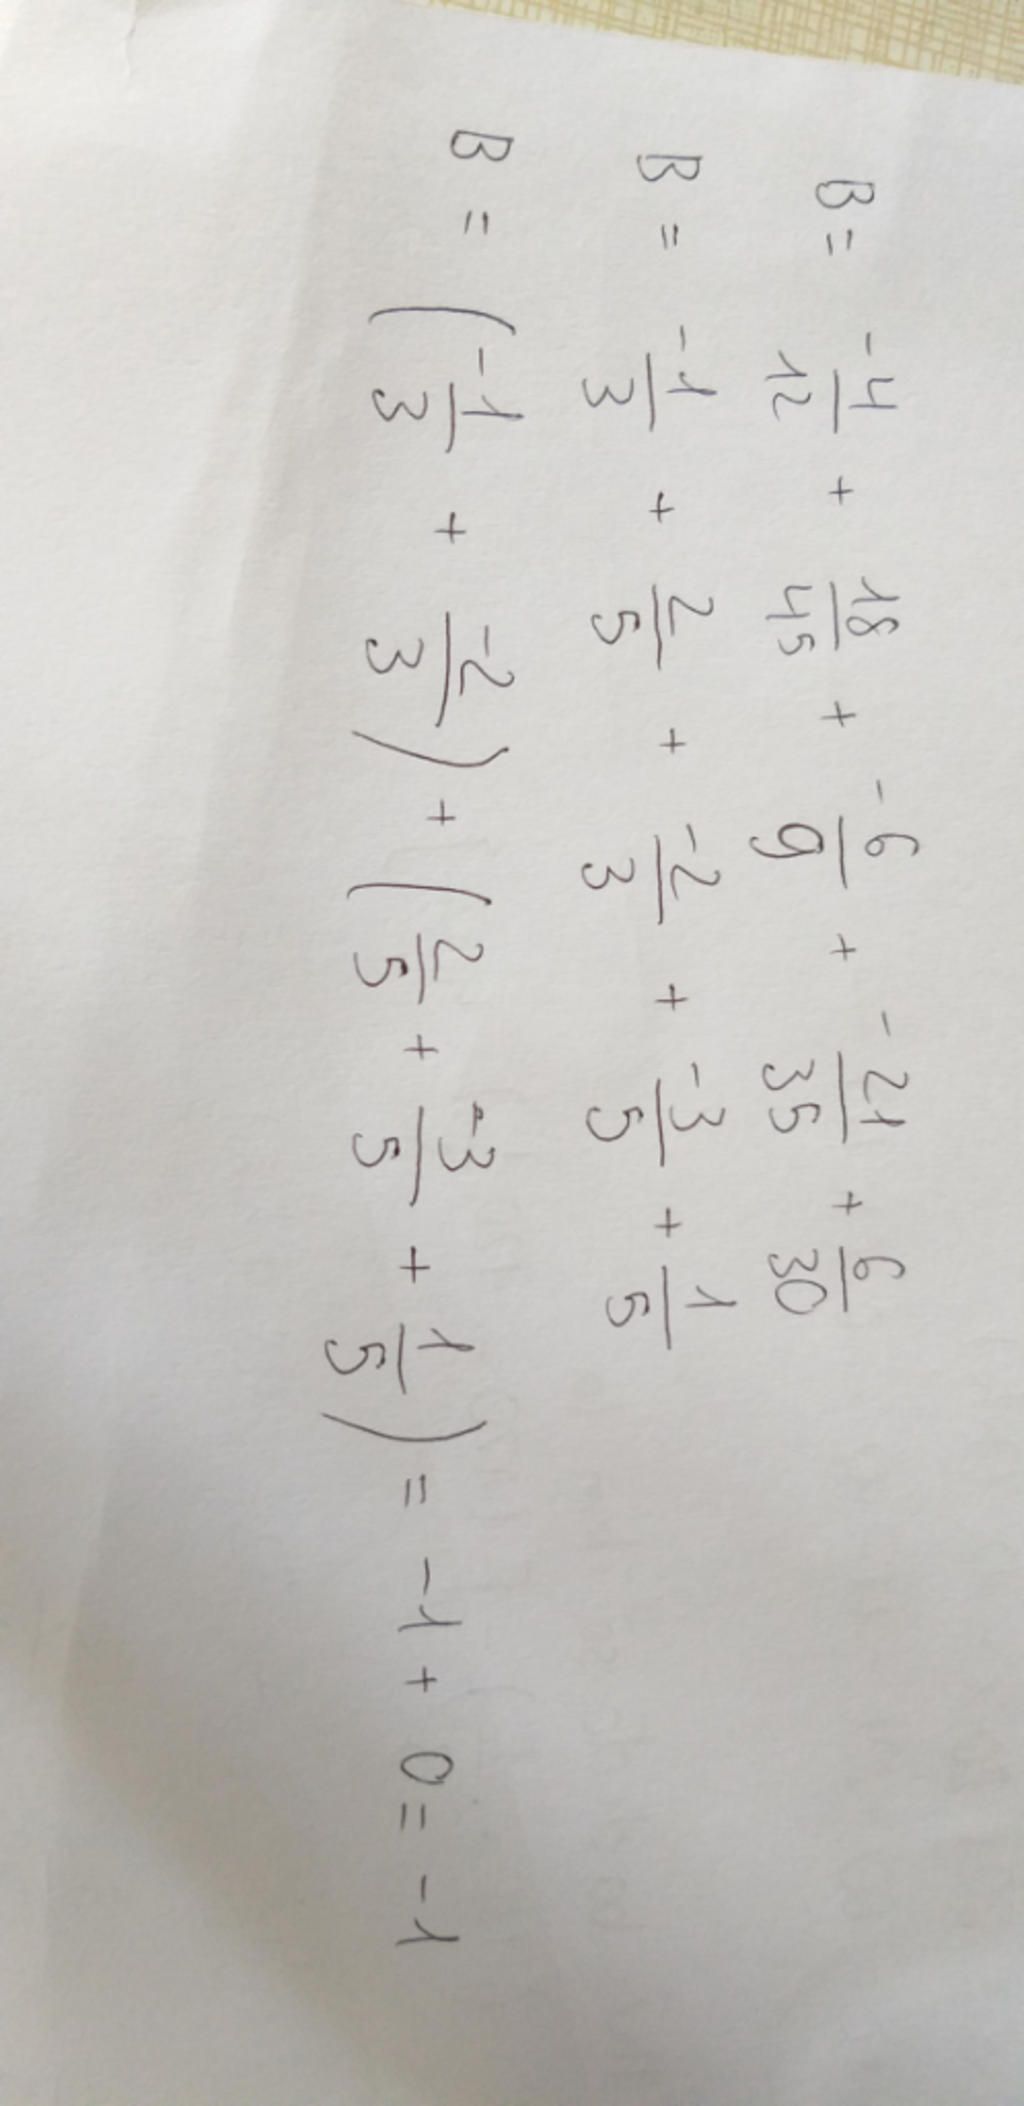 B = -4/12 + 18/45 + -6/9 + -21/35 + 6/30
B = -1/3 + 2/5 + -2/3 + -3/5 + 1/5
B = (-1/3 + -2/3) + (2/5 + -3/5 + 1/5) = -1 + 0 = -1